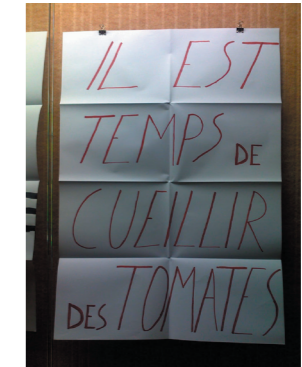 IL EST
TEMPS DE
CUEILLIR
DES TOMATES